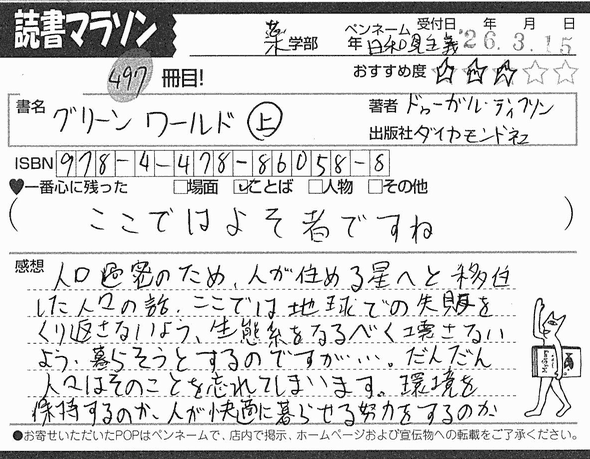 読書マラソン
薬学部 年
ペンネーム 日和見主義
受付日 年 月 日
'26.3.15
497冊目!
おすすめ度 ☆☆☆☆☆
書名 グリーン ワールド 上
著者 ドゥーガル・ディクソン
出版社 ダイヤモンド社
ISBN 978-4-478-86058-8
♥一番心に残った □場面 ☑ことば □人物 □その他
(ここではよそ者ですね)
感想
人口過密のため、人が住める星へと移住
した人々の話。ここでは地球での失敗を
くり返さないよう、生態系をなるべく壊さない
よう、暮らそうとするのですが…。だんだん
人々はそのことを忘れてしまいます。環境を
保持するのか、人が快適に暮らせる努力をするのか
●お寄せいただいたPOPはペンネームで、店内で掲示、ホームページおよび宣伝物への転載をご了承ください。